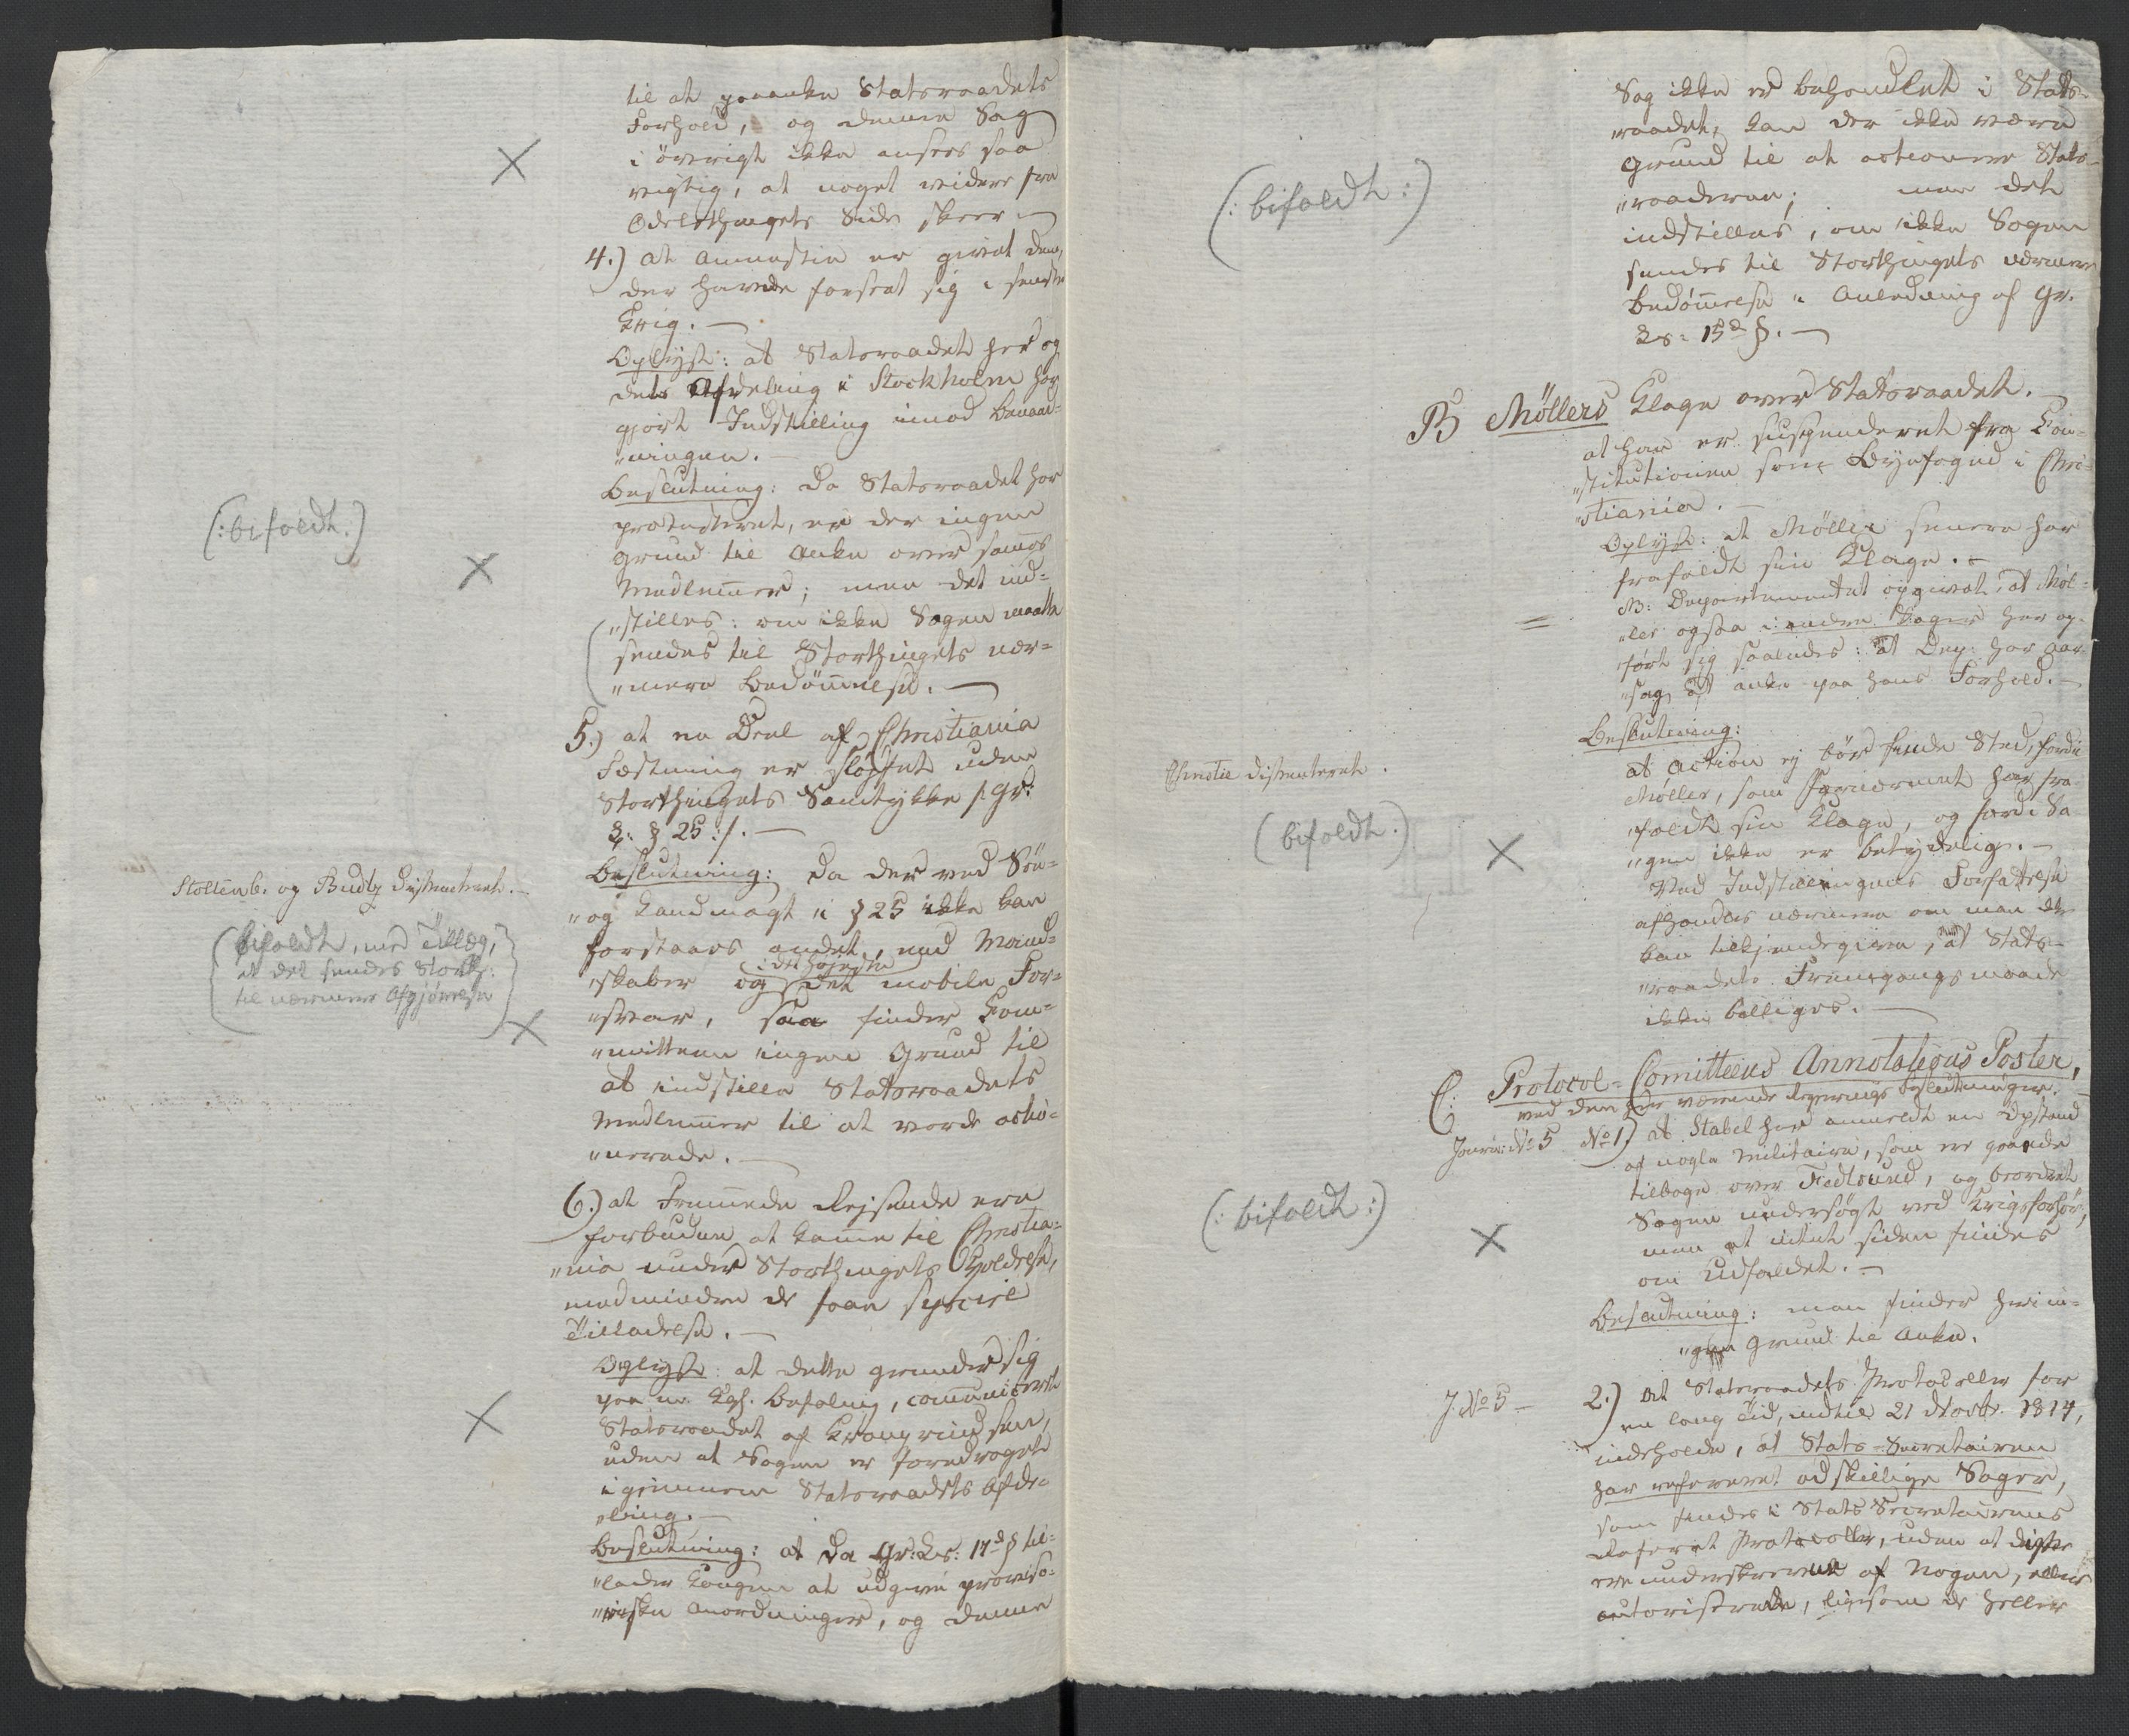 til at paaanke Statsraadets
Forhold, og denne Sag
i öwrigt ikke ansees saa
vigtig, at noget videre fra
Odelsthingets Side skeer
4.) at Amnestie er givet dem,
der havde forseet sig i sidste
Krig. —
Oplyst: at Statsraadet her og
dets Afdeling i Stockholm har
gjort Indstilling imod Benaad-
"ningen. —
Beslutning: Da Statsraadet har
protesteret, er der ingen
Grund til Anke over sammes
Medlemmer; men det ind-
"stilles: om ikke Sagen maatte
sendes til Storthingets nær-
"mere Bedömmelse. —
(: bifaldt.)
5.) at en Deel af Christiania
Fæstning er slöjfet uden
Storthingets Samtykke /: Gr:
L: § 25 :/. —
Beslutning: Da der ved Söe-
"og Landmagt i § 25 ikke kan
forstaaes andet, end Mand-
"skaber og i det höjeste det mobile For-
"svar, saa finder Com-
"mitteen ingen Grund til
at indstille Statsraadets
Medlemmer til at worde actio-
"nerede. —
Stoltenb. og Budtz dissenterede. —
(bifaldt, med Tillæg,
at det sendes Storth:
til nærmere Afgjörelse)
6.) at Fremmede Rejsende ere
forbudne at komme til Christia-
"nia under Storthingets Holdelse,
medmindre de faae speciel
Tilladelse. —
Oplyst: at dette grunder sig
paa en Kgl. Befaling, communiceret
Statsraadet af Kronprindsen,
uden at Sagen er foredraget
igjennem Statsraadets Afde-
"ling. —
Beslutning: at da Gr: Lov: 17d § til-
"lader Kongen at udgive proviso-
"riske Anordninger, og denne
Sag ikke er behandlet i Stats-
"raadet, kan der ikke være
Grund til at actionere Stats-
"raaderne; men det
indstilles, om ikke Sagen
sendes til Storthingets nærmere
Bedömmelse i Anledning af Gr.
Ls: 15d §. —
(: bifaldt :)
B Möllers Klage over Statsraadet. —
at han er suspenderet fra Con-
"stitutionen som Byefoged i Chri-
"stiania. —
Oplyst: at Möller senere har
frafaldt sin Klage. —
NB: Departementet opgivet, at Möl-
"ler ogsaa i andre Sager har op-
"fört sig saaledes: at Dep: har Aar-
"sag at anke paa hans Forhold. —
Beslutning:
at Action ej bör finde Sted, fordi
Möller, som Fornærmet har fra-
"faldt sin Klage, og fordi Sa-
"gen ikke er betydelig. —
Ved Indstillingens Forfattelse
afhandles nærmere om man ikke
kan tilkjendegive, at Stats-
"raadets Fremgangsmaade
ikke billiges. —
Christie dissenterede.
(bifaldt.)
C: Protocol-Comitteens Annotations Poster,
ved den her værende Regjerings Beslutninger.
Journ: No 5 No 1) at Stabel har anmeldt en Opstand
af nogle Militaire, som ere gaaede
tilbage over Fedtsund, og beordret
Sagen undersögt ved Krigsforhör,
men at intet siden findes
om Udfaldet. —
Beslutning: man finder heri in-
"gen Grund til Anke.
(: bifaldt :)
J. No 5 — 2.) at Statsraadets Protocoller for
en lang Tid, indtil 21 Novbr. 1814,
indeholde, at Stats-Secretairen
har refereret adskillige Sager,
som findes i Stats Secretairens
Referat Protocoller, uden at disse
ere underskrevne af Nogen, eller
autoriserede, ligesom de heller